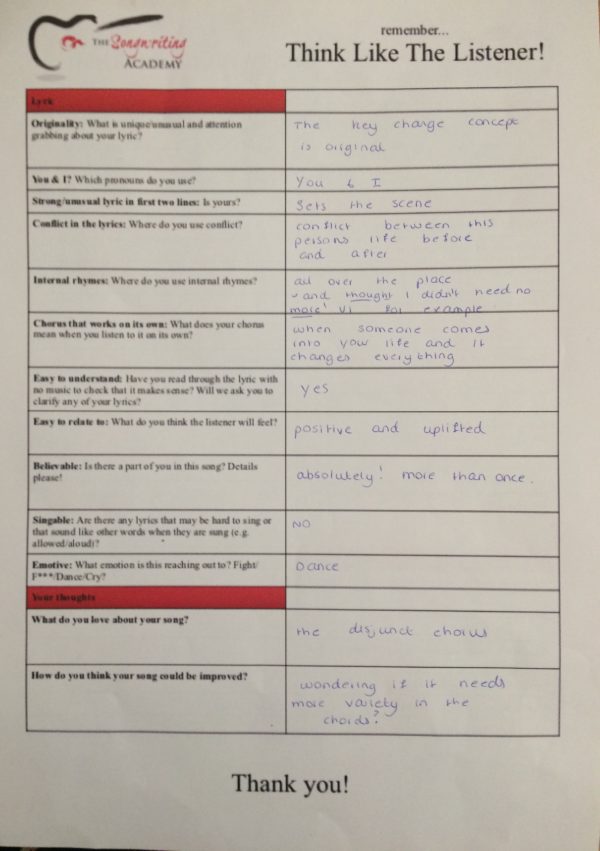 THE Songwriting
ACADEMY
remember...
Think Like The Listener!
Lyric
Originality: What is unique/unusual and attention
grabbing about your lyric?
The key change concept
is original
You & I? Which pronouns do you use?
You & I
Strong/unusual lyric in first two lines: Is yours?
Sets the scene
Conflict in the lyrics: Where do you use conflict?
conflict between this
persons life before
and after
Internal rhymes: Where do you use internal rhymes?
all over the place
- and thought I didn't need no
more' V1 for example
Chorus that works on its own: What does your chorus
mean when you listen to it on its own?
when someone comes
into your life and it
changes everything
Easy to understand: Have you read through the lyric with
no music to check that it makes sense? Will we ask you to
clarify any of your lyrics?
yes
Easy to relate to: What do you think the listener will feel?
positive and uplifted
Believable: Is there a part of you in this song? Details
please!
absolutely! more than once.
Singable: Are there any lyrics that may be hard to sing or
that sound like other words when they are sung (e.g.
allowed/aloud)?
NO
Emotive: What emotion is this reaching out to? Fight/
F***/Dance/Cry?
Dance
Your thoughts
What do you love about your song?
the disjunct chorus
How do you think your song could be improved?
wondering if it needs
more variety in the
chords?
Thank you!